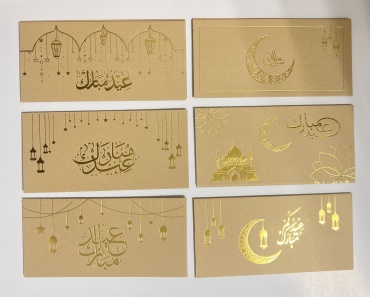 عيد مبارك
عيد مبارك
عيد مبارك
عيد مبارك
عيدكم
مبارك